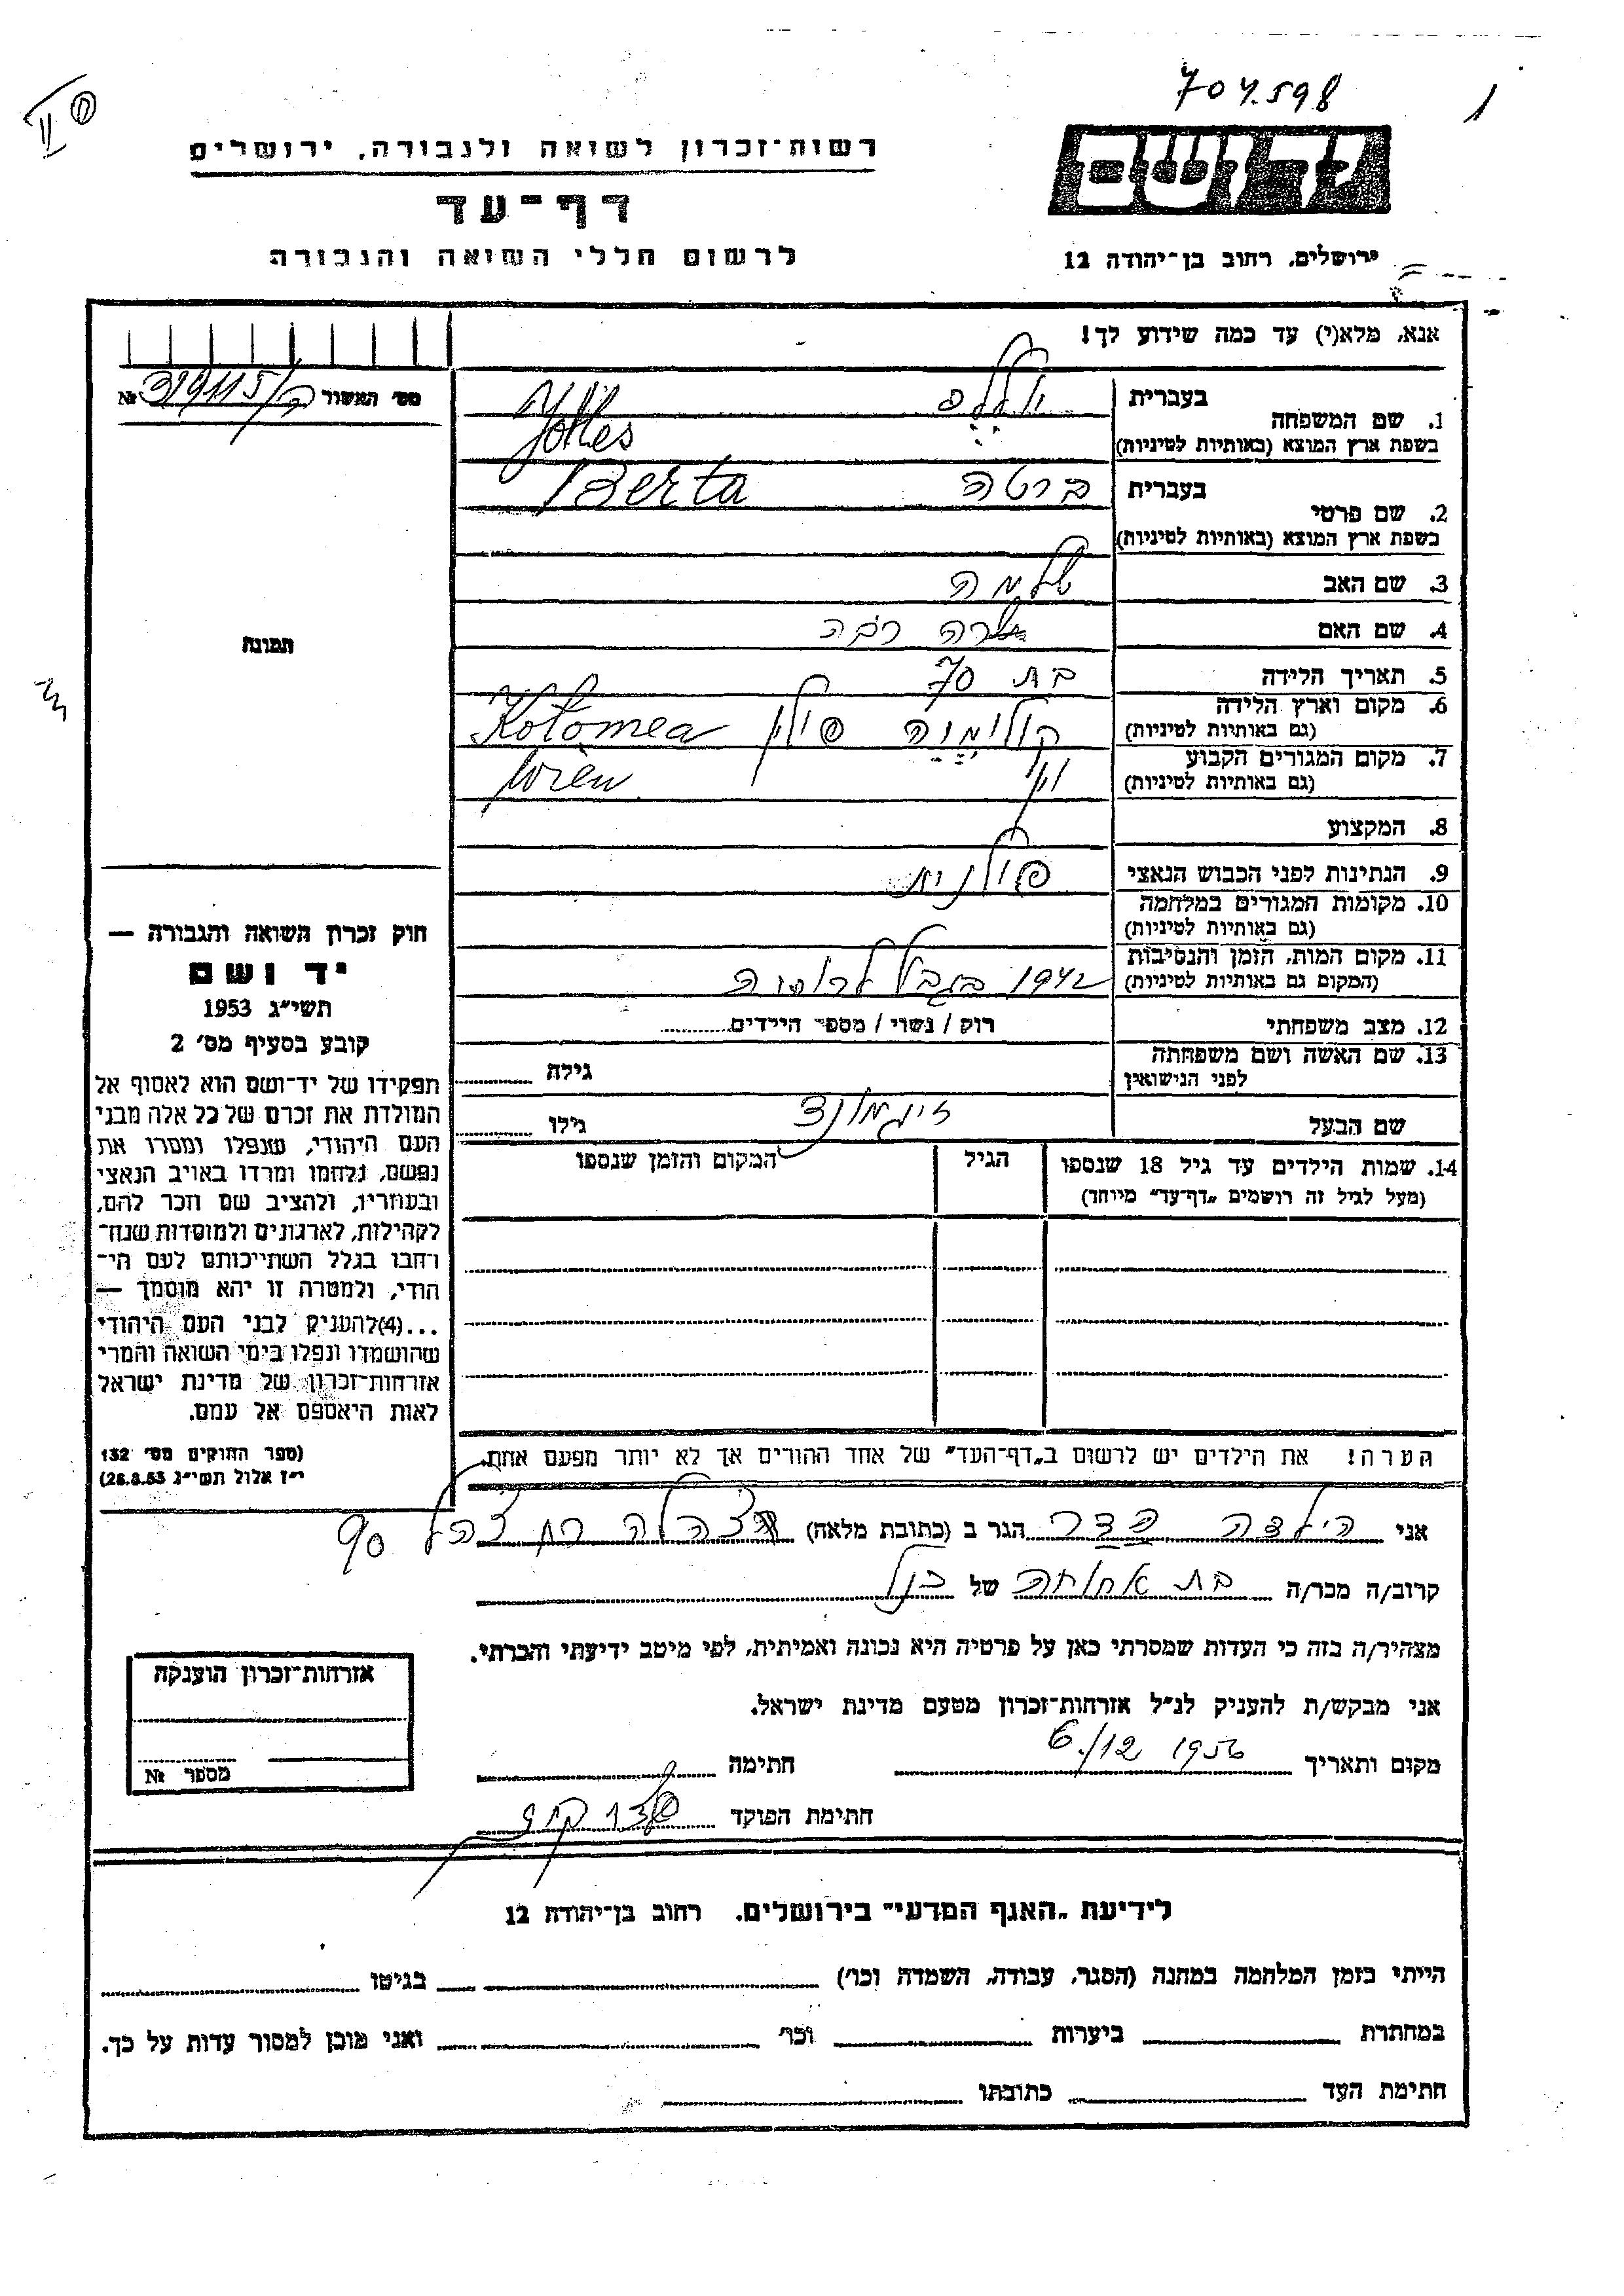 704.598
רשות-זכרון לשואה ולגבורה, ירושלים
דף-עד
לרשום חללי השואה והגבורה
יד ושם
ירושלים, רחוב בן-יהודה 12
אנא, מלא(י) עד כמה שידוע לך!
מס' האשור №
319115/ק
1. שם המשפחה
בעברית
יולס
בשפת ארץ המוצא (באותיות לטיניות)
Jolles
2. שם פרטי
בעברית
ברטה Berta
בשפת ארץ המוצא (באותיות לטיניות)
3. שם האב
שלמה
4. שם האם
שרה רבה
5. תאריך הלידה
בת 70
6. מקום וארץ הלידה
(גם באותיות לטיניות)
קולומיה פולין Kolomea
7. מקום המגורים הקבוע
(גם באותיות לטיניות)
וין Wien
8. המקצוע
9. הנתינות לפני הכבוש הנאצי
פולנית
10. מקומות המגורים במלחמה
(גם באותיות לטיניות)
11. מקום המות, הזמן והנסיבות
(המקום גם באותיות לטיניות)
1942 בגבל
12. מצב משפחתי
רוק / נשוי / מספר הילדים
13. שם האשה ושם משפחתה
לפני הנישואין
גילה
שם הבעל
זיגמונד
גילו
14. שמות הילדים עד גיל 18 שנספו
(מעל לגיל זה רושמים „דף-עד" מיוחד)
הגיל
המקום והזמן שנספו
תמונה
חוק זכרון השואה והגבורה —
יד ושם
תשי"ג 1953
קובע בסעיף מס' 2
תפקידו של יד-ושם הוא לאסוף אל
המולדת את זכרם של כל אלה מבני
העם היהודי, שנפלו ומסרו את
נפשם, נלחמו ומרדו באויב הנאצי
ובעוזריו, ולהציב שם וזכר להם,
לקהילות, לארגונים ולמוסדות שנח-
רחבו בגלל השתייכותם לעם הי-
הודי, ולמטרה זו יהא מוסמך —
...(4)להעניק לבני העם היהודי
שהושמדו ונפלו בימי השואה והמרי
אזרחות-זכרון של מדינת ישראל
לאות היאספם אל עמם.
(ספר החוקים מס' 132
י"ז אלול תשי"ג 28.8.53)
הערה! את הילדים יש לרשום ב„דף-העד" של אחד ההורים אך לא יותר מפעם אחת.
אני הילדה פדר הגר ב (כתובת מלאה) צהלה רח צהל 90
קרוב/ה מכר/ה בת אחותה של הנל
מצהיר/ה בזה כי העדות שמסרתי כאן על פרטיה היא נכונה ואמיתית, לפי מיטב ידיעתי והכרתי.
אני מבקש/ת להעניק לנ"ל אזרחות-זכרון מטעם מדינת ישראל.
מקום ותאריך 6./12 1956 חתימה
חתימת הפוקד
אזרחות-זכרון הוענקה
מספר №
לידיעת „האגף המדעי" בירושלים. רחוב בן-יהודה 12
הייתי בזמן המלחמה במחנה (הסגר, עבודה, השמדה וכו') בגיטו
במחתרת ביערות וכו' ואני מוכן למסור עדות על כך.
חתימת העד כתובתו